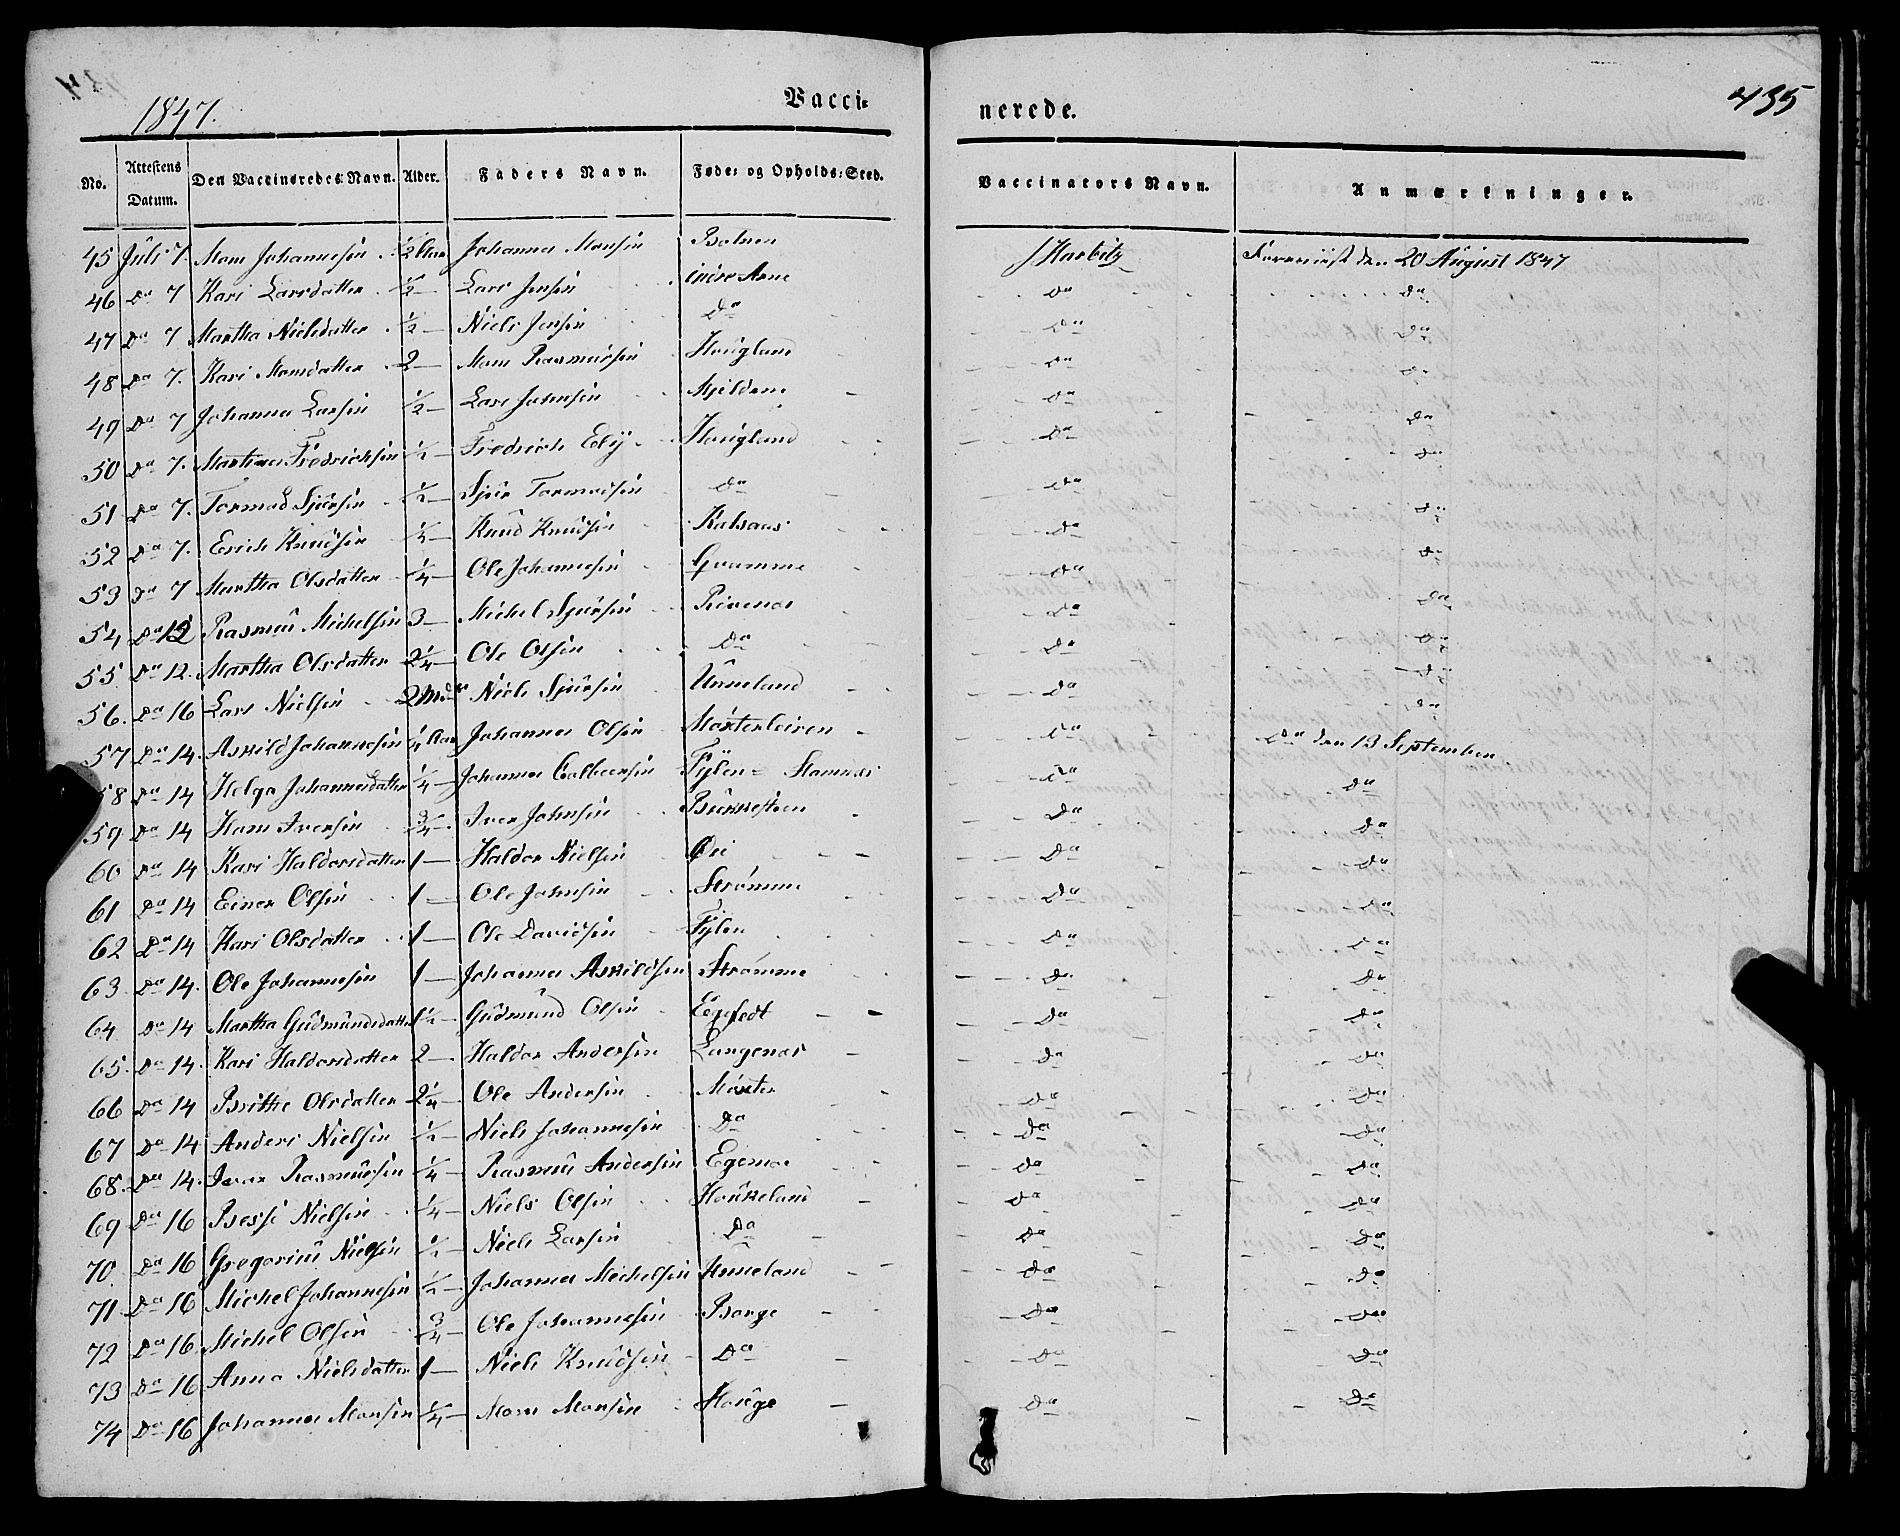 1847.
Vacci=
nerede.
435
No. Attestens Datum. Den Vaccineredes Navn. Alder. Faders Navn. Føde= og Opholds=Sted. Vaccinators Navn. Anmærkninger.
45 Juli 7. Mons Johannesen ½ Aar Johannes Monsen J Harbitz Foreviist den 20 August 1847
46 Do 7 Kari Larsdatter ½ — Lars Jensen indre Arne Do Do
47 Do 7 Martha Nielsdatter ½ — Niels Jensen Do Do Do
48 Do 7. Kari Monsdatter 2 — Mons Rasmussen Hougland Do Do
49 Do 7 Johannes Larsen ½ — Lars Johnsen Mjeldene Do Do
50 Do 7. Martines Fredrichsen ½ — Fredrich Hougland Do Do
51 Do 7. Tormod Sjursen ½ — Sjur Tormodsen Do Do Do
52 Do 7. Erich Knudsen ½ — Knud Knudsen Kalsaas Do Do
53 Do 7 Martha Olsdatter ¼ — Ole Johannesen Gramme Do Do
54 Do 12 Rasmus Michelsen 3 — Michel Sjursen Rivenes Do Do
55 Do 12. Martha Olsdatter 2¼ — Ole Olsen Do Do Do
56. Do 16 Lars Nielsen 2 Mdr Niels Sjursen Unneland Do Do
57 Do 14. Askild Johannesen ¼ Aar Johannes Olsen Møxterleiren Do Do den 13 September
58 Do 14 Helga Johannesdatter ¼ — Johannes Colbeensen Fylen = Stamnes Do Do
59 Do 14 Hans Iversen ¾ — Iver Johnsen Bukkesteen Do Do
60 Do 14 Kari Haldorsdatter 1 — Haldor Nielsen Øri Do Do
61 Do 14 Einer Olsen 1 — Ole Johnsen Strømme Do Do
62 Do 14 Kari Olsdatter 1 — Ole Davidsen Fylen Do Do
63 Do 14. Ole Johannesen 1 — Johannes Askildsen Strømme Do Do
64 Do 14 Martha Gudmundsdatter 1½ — Gudmund Olsen Do Do
65. Do 14. Kari Haldorsdatter 2 — Haldor Andersen Langenæs Do Do
66 Do 14 Brithe Olsdatter 2¼ — Ole Andersen Møxter Do Do
67 Do 14 Anders Nielsen ½ — Niels Johannesen Do Do Do
68. Do 14. Iver Rasmussen ¼ — Rasmus Andersen Egenæs Do Do
69 Do 16 Bessi Nielsen ¼ — Niels Olsen Houkeland Do Do
70 Do 16 Gregorius Nielsen ½ — Niels Larsen Do Do Do
71 Do 16 Michel Johannesen ½ — Johannes Michelsen Unneland Do Do
72 Do 16. Michel Olsen ¾ — Ole Johannesen Borge Do Do
73 Do 16 Anna Nielsdatter 1 — Niels Knudsen Do Do Do
74 Do 16 Johannes Monsen ¼ — Mons Monsen Houge Do Do